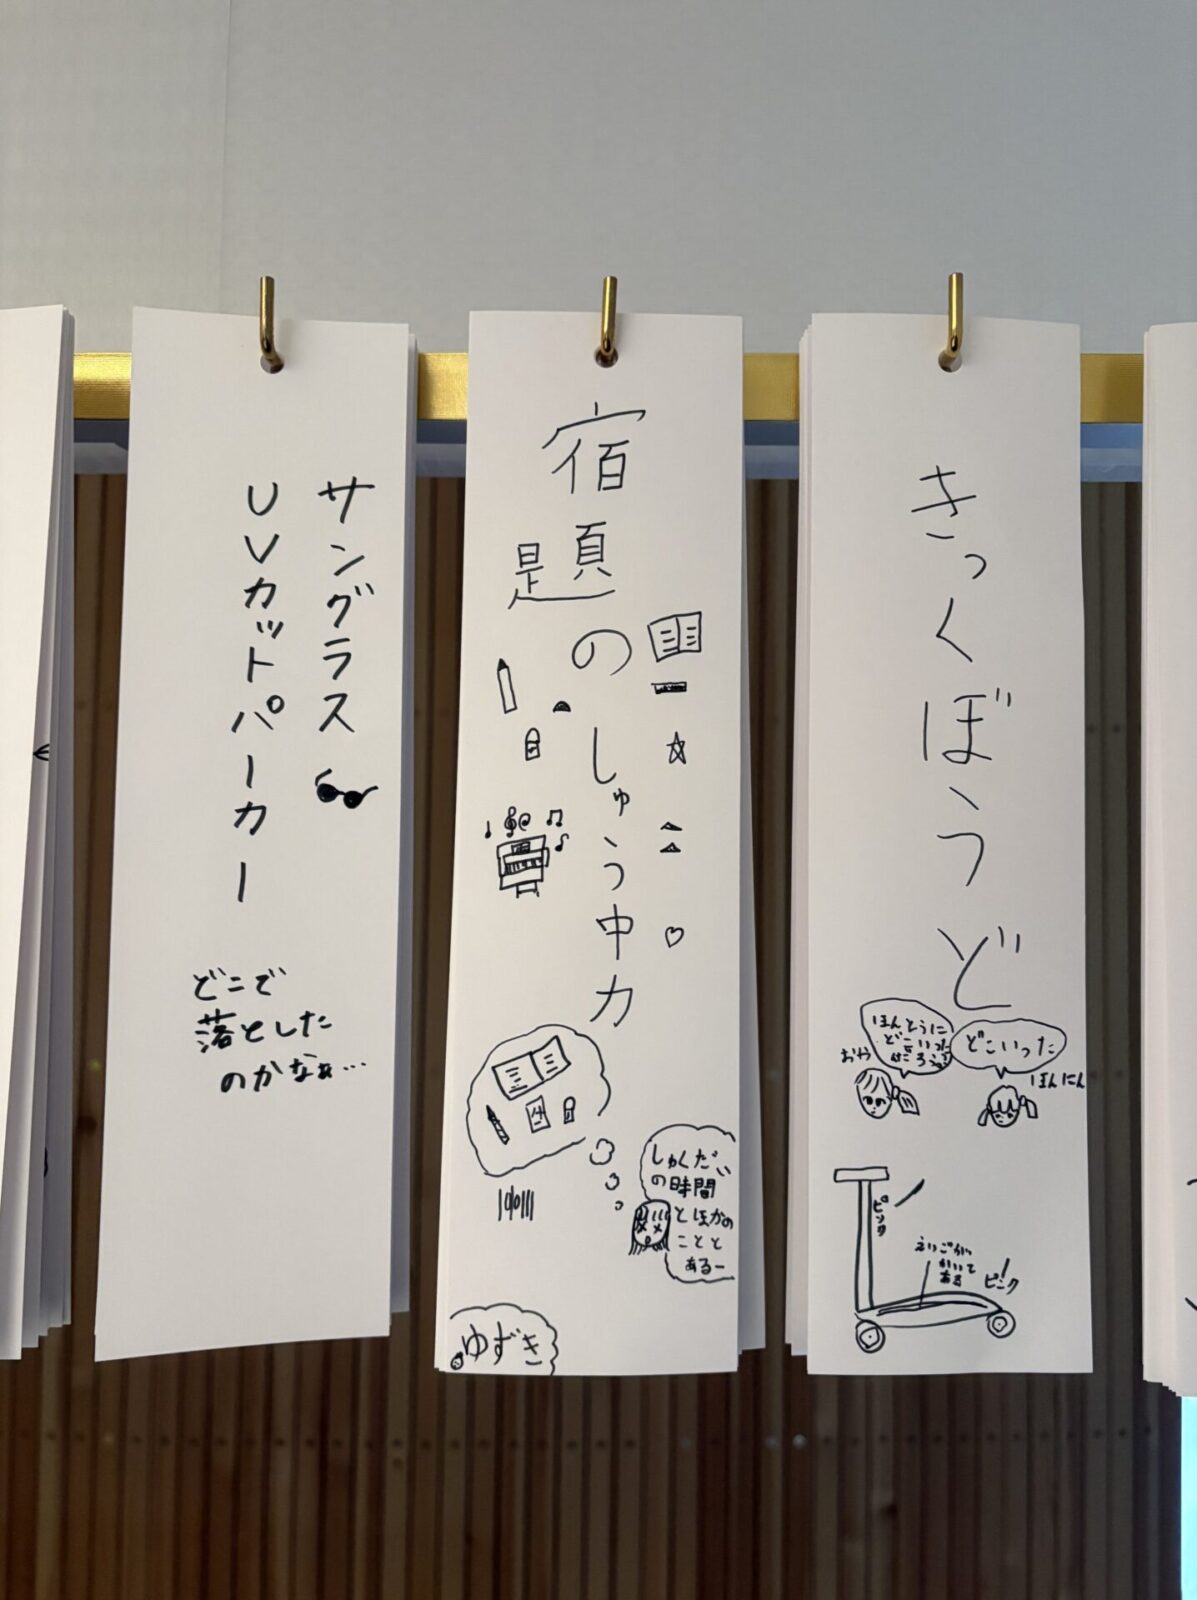 サングラス
UVカットパーカー
どこで
落とした
のかなぁ…
宿題のしゅう中力
しゅくだい
の時間
とほかの
ことと
あるー
ゆずき
きっくぼうど
ほんとうに
どこいった
だろう
おや
どこいった
ほんにん
ピンク
えいごが
かいて
ある
ピンク